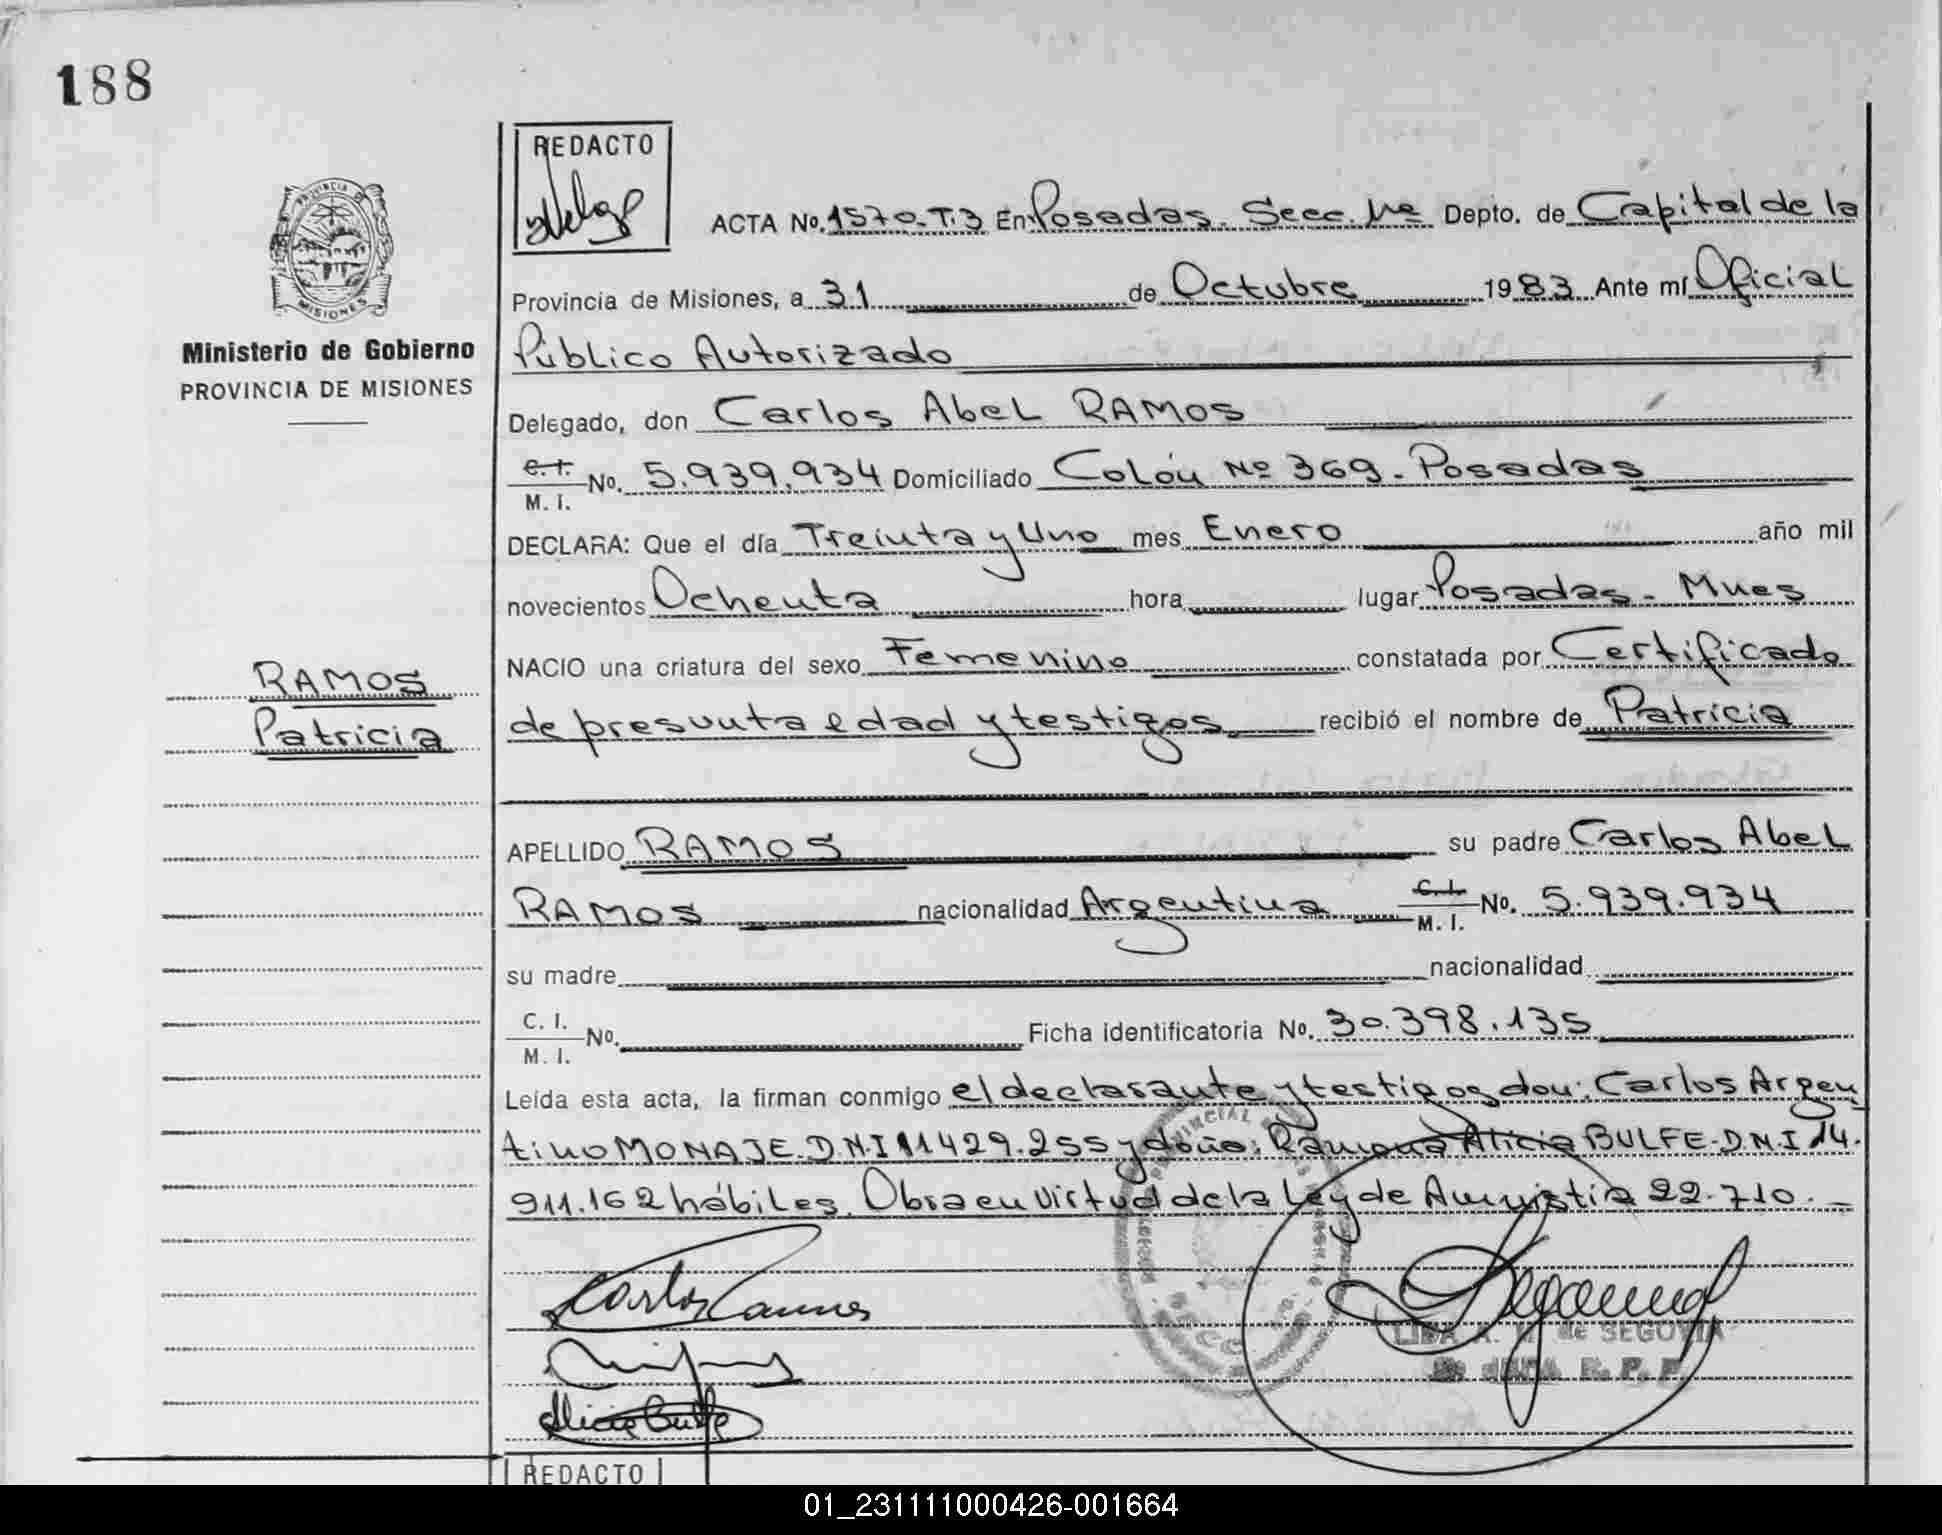 188
REDACTO
ACTA No. 1570-T.3 En Posadas. Secc. 1ra Depto. de Capital de la
PROVINCIA DE MISIONES
Provincia de Misiones, a 31 de Octubre 1983 Ante mí Oficial
Ministerio de Gobierno
PROVINCIA DE MISIONES
Público Autorizado
Delegado, don Carlos Abel RAMOS
C.I. M. I. No. 5.939.934 Domiciliado Colón Nº 369.- Posadas
DECLARA: Que el día Treinta y Uno mes Enero año mil
novecientos Ochenta hora lugar Posadas - Mnes
RAMOS
Patricia
NACIO una criatura del sexo Femenino constatada por Certificado
de presunta edad y testigos recibió el nombre de Patricia
APELLIDO RAMOS su padre Carlos Abel
RAMOS nacionalidad Argentina C.I. M. I. No. 5.939.934
su madre nacionalidad
C. I. M. I. No. Ficha identificatoria No. 30.398.135
Leída esta acta, la firman conmigo el declarante y testigos don: Carlos Argen
tino MONAJE. D.N.I 11429.255 y doña: Ramona Alicia BULFE. D.N.I 14.
911.162 hábiles. Obra en virtud de la Ley de Amnistia 22.710.-
Carlos Ramos
Alicia Bulfe
de SEGOVIA
REDACTO
01_231111000426-001664